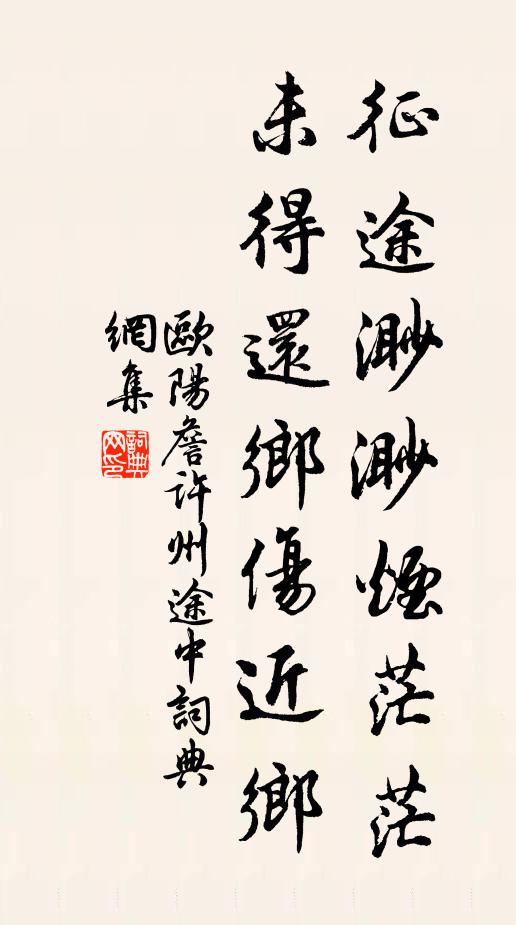 征途渺渺煙茫茫
未得還鄉傷近鄉
歐陽詹許州途中詞典
網集
詞典网印